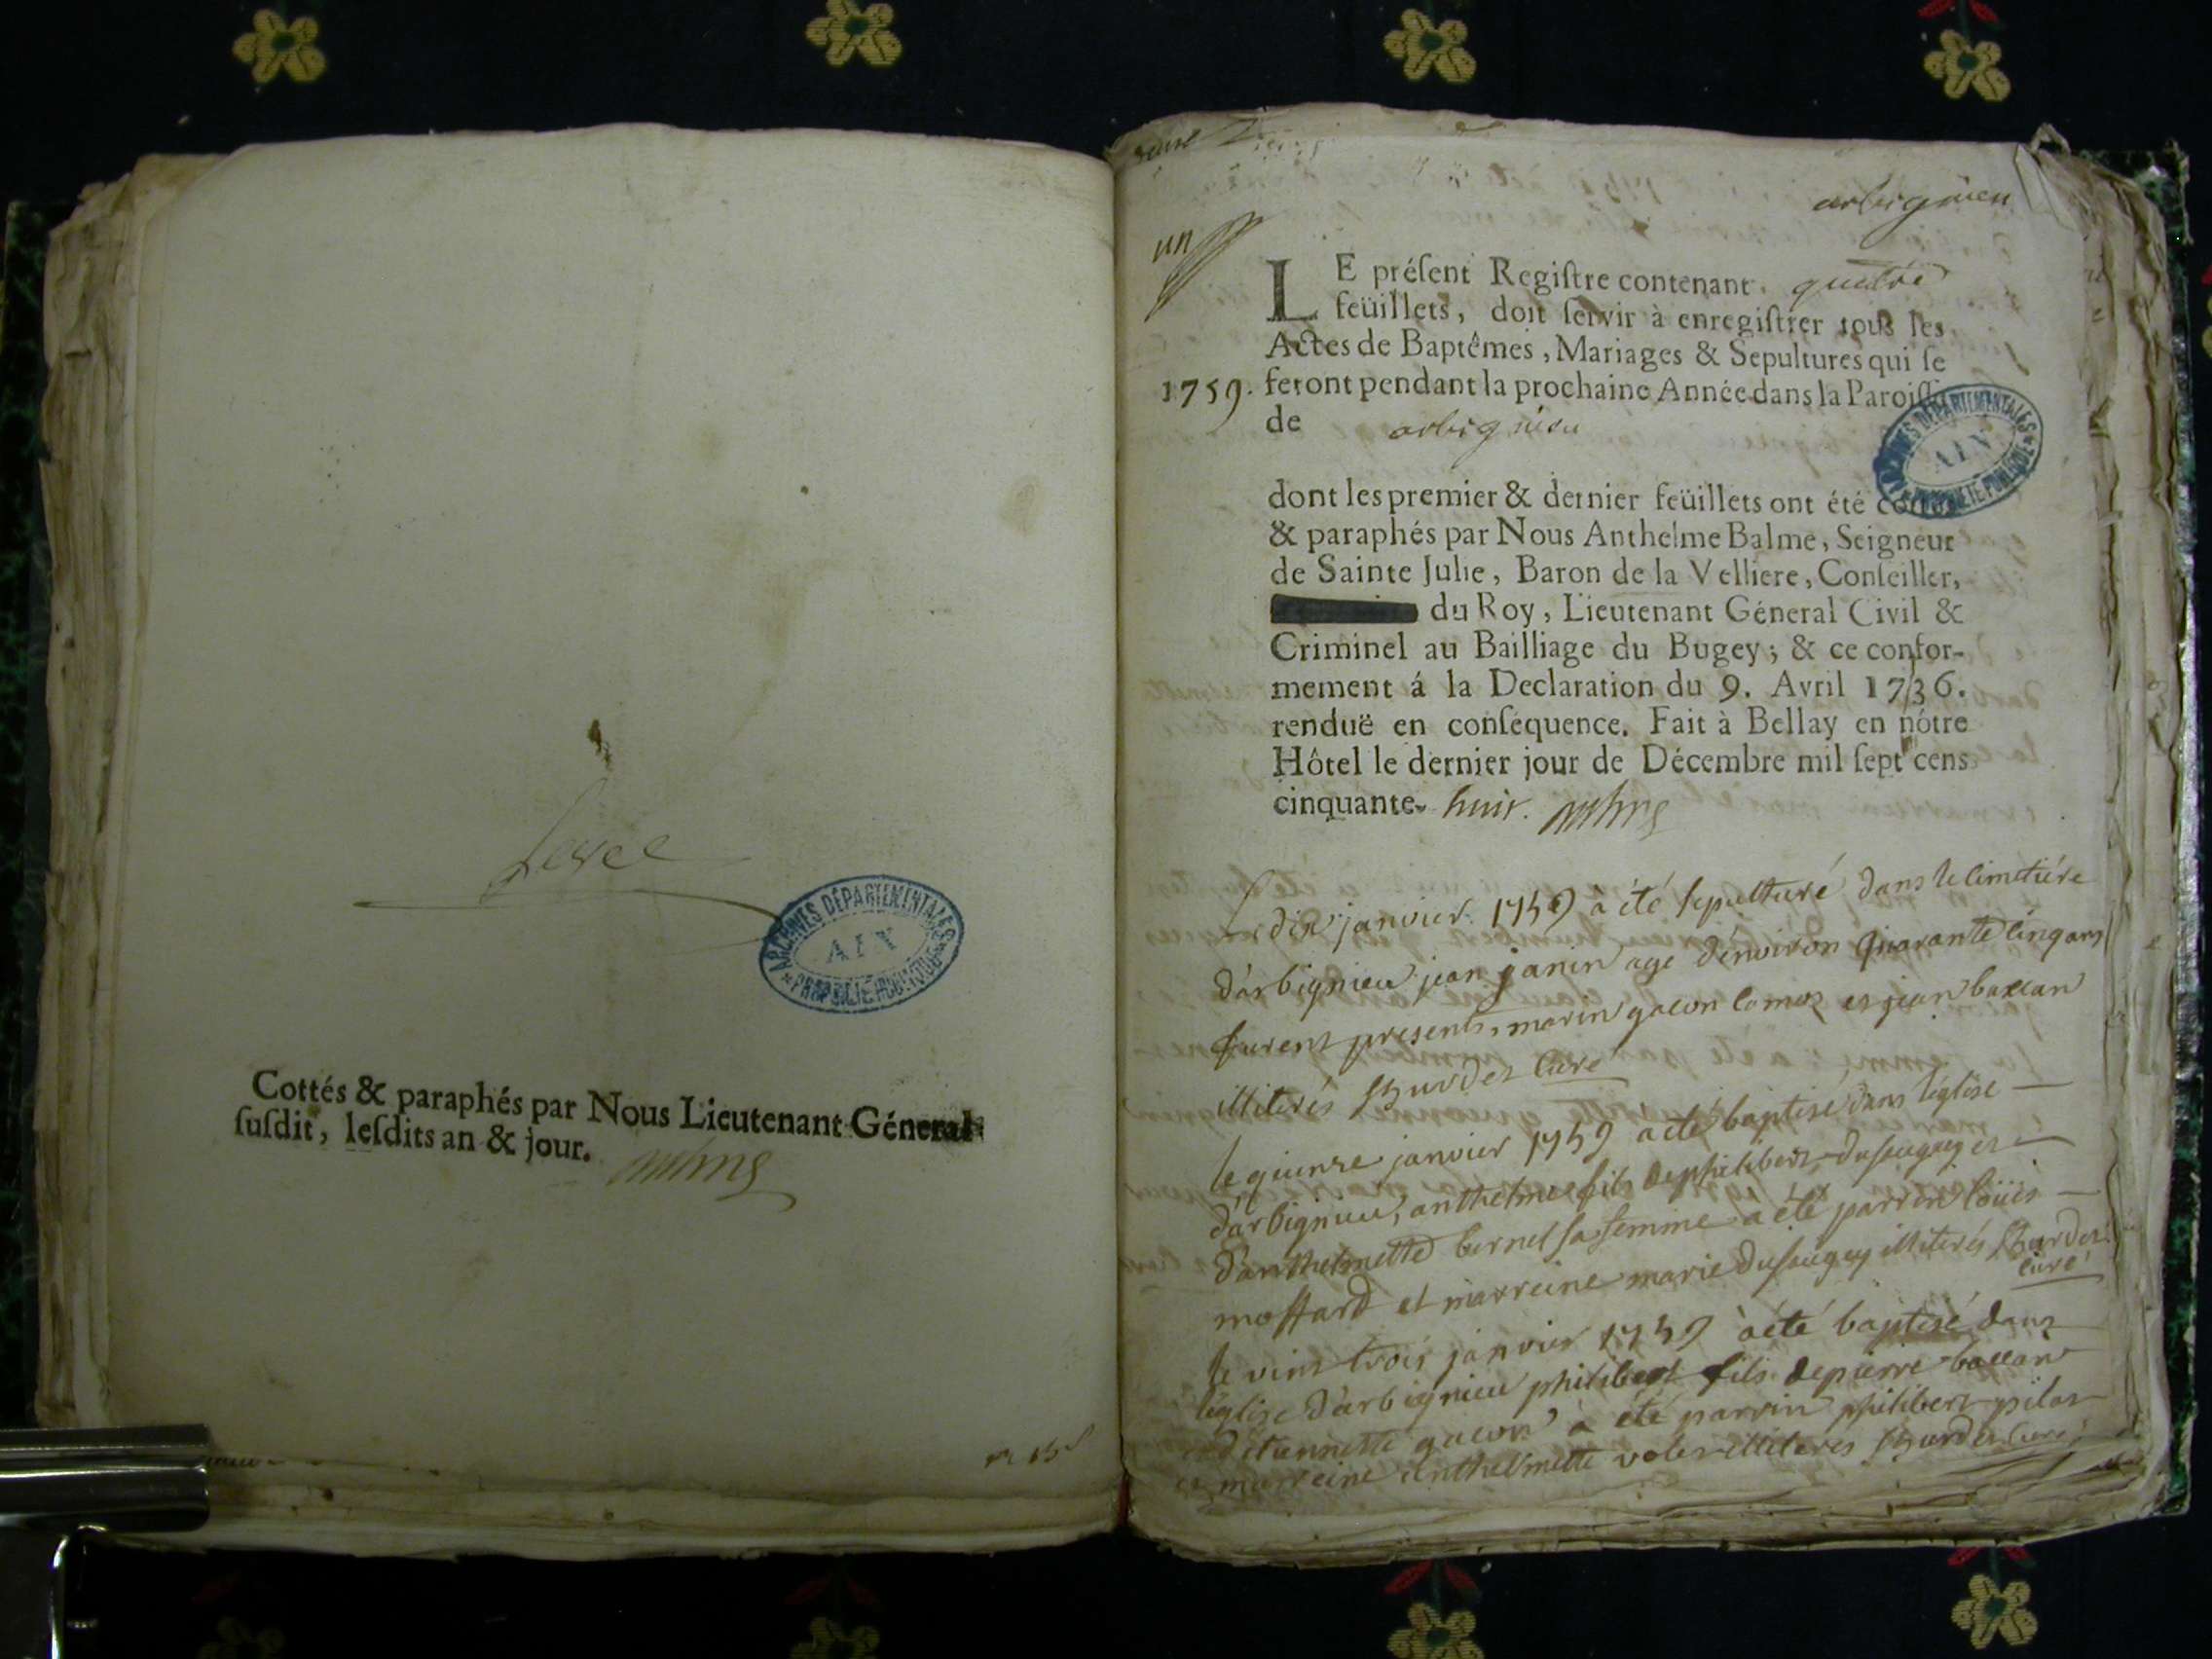 Levee
ARCHIVES DÉPARTEMENTALES
AIN
PROPRIÉTÉ PUBLIQUE
Cottés & paraphés par Nous Lieutenant Géneral
ſuſdit, leſdits an & jour.
arbignieu
un
LE préſent Regiſtre contenant quatre
feüillets, doit ſervir à enregiſtrer tous les
Actes de Baptêmes, Mariages & Sepultures qui ſe
1759. feront pendant la prochaine Année dans la Paroiſſe
de arbignieu
ARCHIVES DÉPARTEMENTALES
AIN
PROPRIÉTÉ PUBLIQUE
dont les premier & dernier feüillets ont été
& paraphés par Nous Anthelme Balme, Seigneur
de Sainte Julie, Baron de la Velliere, Conſeiller,
du Roy, Lieutenant Géneral Civil &
Criminel au Bailliage du Bugey; & ce confor-
mement á la Declaration du 9. Avril 1736.
renduë en conſequence. Fait à Bellay en nôtre
Hôtel le dernier jour de Décembre mil ſept cens
cinquante- huit.
Le dix janvier 1759 à été sepulturé dans le cimetiére
d'arbignieu jean janin agé d'environ quarante cinq ans
furent presents, marin gacon et jean baccan
illiterés curé
le quinze janvier 1759 a été baptisé dans l'eglise
d'arbignieu, anthelme fils de philibert dusaugey et
d'anthelmette bernel sa femme a été parrin loüis
moffard et marreine marie dusaugey illiterés
curé
le vint trois janvier 1759 à été baptisé dans
l'églize d'arbignieu philibert fils de pierre baccan
et d'etiennette gacon à été parrin philibert pilas
et marreine anthelmette illiterés curé